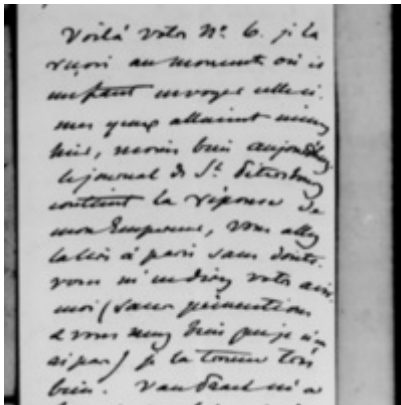 Voilà votre N.º 6. je la
reçois au moment où il
me faut envoyer celle ci.
mes yeux allaient mieux
hier, moins bien aujourd'huy
le journal de S.t Petersbourg
contient la réponse de
mon Empereur, vous allez
la lire à paris sans doute.
vous m'en direz votre avis.
moi (sans prévention
& vous savez bien que je n'en
ai pas) je la trouve très
bien. Van Praet m'a